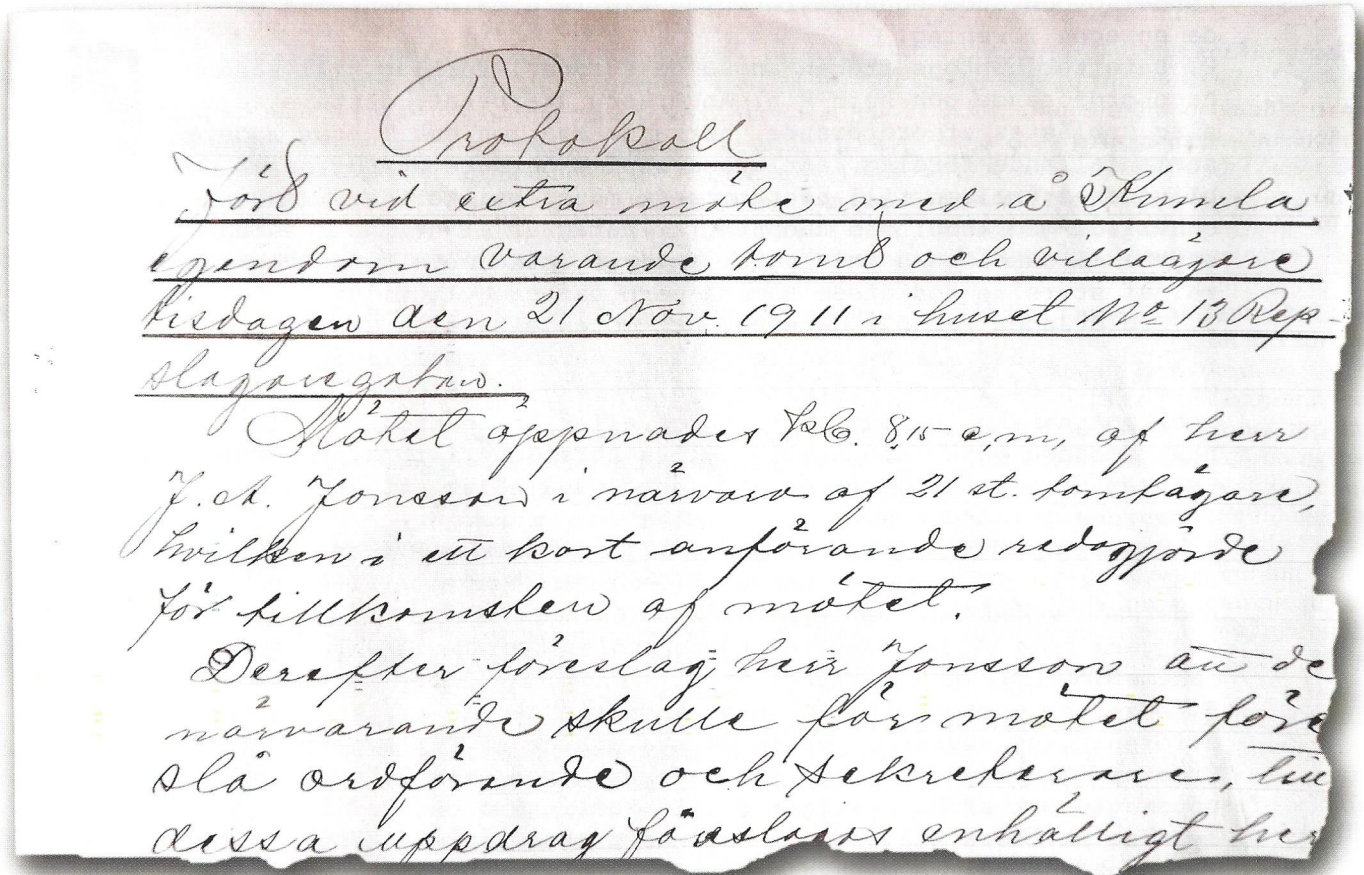 Protokoll
förd vid extra möte med å Kumla
egendom varande tomt och villaägare
tisdagen den 21 Nov. 1911 i huset No 13 Rep-
slagaregatan.
Mötet öppnades kl. 8,15 e,m, af herr
J. A. Jonsson i närvaro af 21 st. tomtägare,
hvilken i ett kort anförande redogjorde
för tillkomsten af mötet.
Derefter föreslag herr Jonsson att de
närvarande skulle för mötet före
slå ordförande och sekreterare, till
dessa uppdrag föreslogos enhälligt her